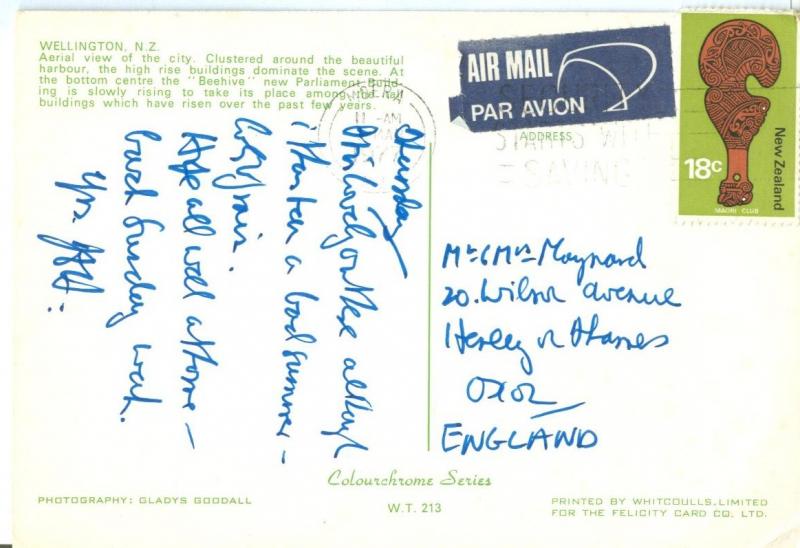 WELLINGTON, N.Z.
Aerial view of the city. Clustered around the beautiful
harbour, the high rise buildings dominate the scene. At
the bottom centre the "Beehive" new Parliament Build-
ing is slowly rising to take its place among the tall
buildings which have risen over the past few years.
AIR MAIL
PAR AVION
ADDRESS
STARTS WITH
SAVING
18c
New Zealand
MAORI CLUB
has been a bad summer –
rain.
Hope all well at home –
back Sunday week.
Yrs.
Mr & Mrs Maynard
20. Wilson Avenue
Henley on Thames
Oxon
ENGLAND
Colourchrome Series
W.T. 213
PHOTOGRAPHY: GLADYS GOODALL
PRINTED BY WHITCOULLS LIMITED
FOR THE FELICITY CARD CO. LTD.